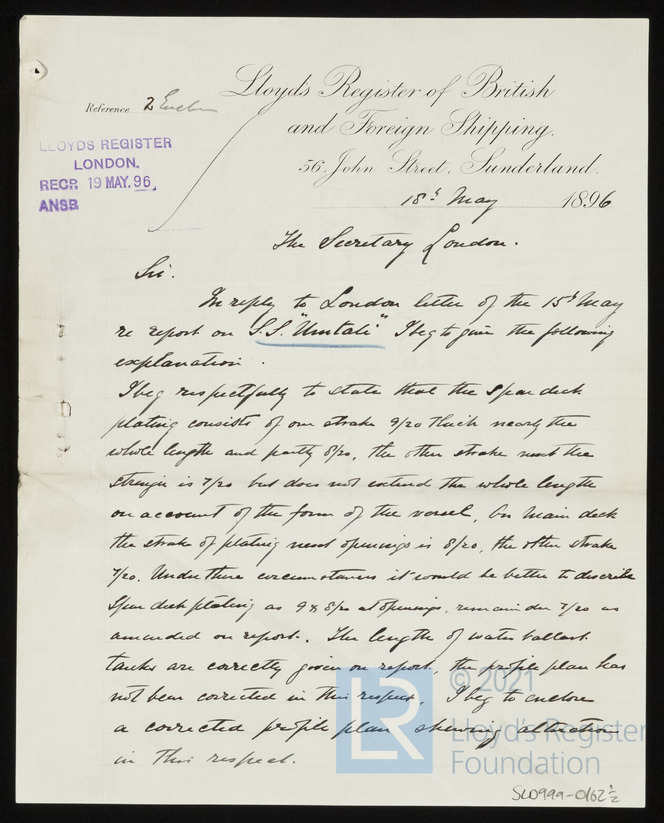 Lloyd's Register of British
and Foreign Shipping.
Reference 2 Enclos
56, John Street, Sunderland.
LLOYDS REGISTER
LONDON.
RECD 19 MAY. 96
ANSD
18th May 1896
The Secretary London.
Sir.
In reply to London letter of the 15th May
re report on S.S. "Umtali" I beg to give the following
explanation.
I beg respectfully to state that the Spar deck
plating consists of one strake 9/20 thick nearly the
whole length and partly 8/20, the other strake next the
stringer is 7/20 but does not extend the whole length
on account of the form of the vessel, On Main deck
the strake of plating next openings is 8/20, the other strake
7/20. Under these circumstances it would be better to describe
Spar deck plating as 9 & 8/20 at openings, remainder 7/20 as
amended on report. The length of water ballast
tanks are correctly given on report, the profile plan has
not been corrected in this respect, I beg to enclose
a corrected profile plan shewing alteration
in this respect.
LR
© 2021
Lloyd's Register
Foundation
SLD999-0162 1/2